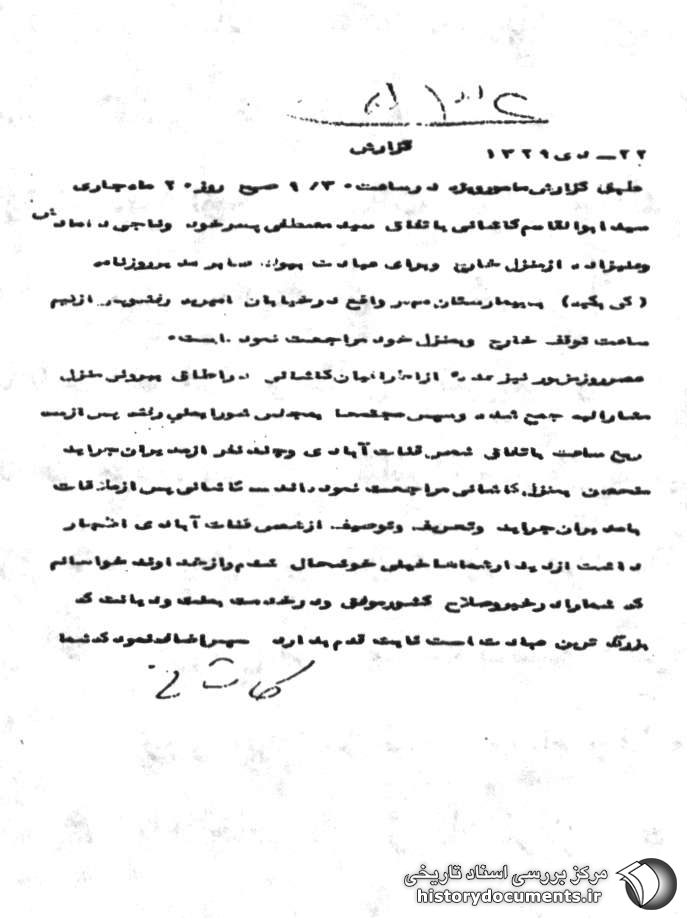 ۲۲ـ دی ۱۳۲۹ گزارش
طبق گزارش مامور ویژه در ساعت ۹/۳۰ صبح روز ۲۰ ماه جاری
سید ابوالقاسم کاشانی باتفاق سید مصطفی پسر خود و ناجی دامادش
و علیزاده از منزل خارج و برای عیادت مدیر روزنامه
( کی بکید) به بیمارستان مهر واقع در خیابان رفته پس از نیم
ساعت توقف خارج و بمنزل خود مراجعت نمود است۰
عصر روز مزبور نیز عده از اطرافیان کاشانی در اطاق بیرونی منزل
مشارالیه جمع شده و سپس مجتمعا بمجلس شورایملی رفته پس از سه
ربع ساعت باتفاق شمس قنات آبادی و چند نفر از مدیران جراید
متحصن بمنزل کاشانی مراجعت نموده‌اند ـ کاشانی پس از ملاقات
با مدیران جراید و تعریف و توصیف از شمس قنات آبادی اظهار
داشت از دیدار شماها خیلی خوشحال شدم و از خداوند خواهانم
که شما را در خیر و صلاح کشور موفق و در خدمت بملت و دیانت که
بزرگ ترین عبادت است ثابت قدم بدارد سپس اضافه نمود که شما
کاشانی
مرکز بررسی اسناد تاریخی
historydocuments.ir